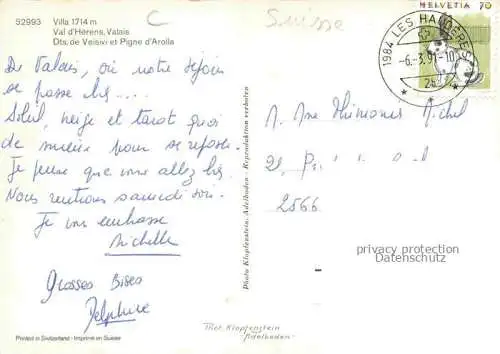 52993 Villa 1714 m
Val d'Hérens, Valais
Dts. de Veisivi et Pigne d'Arolla
C
Suisse
HELVETIA 70
1984 LES HAUDERES
-6.-3.91-10
De Valais, où notre séjour
se passe bien....
Soleil, neige et tarot quoi
de mieux pour se reposer.
Je pense que vous allez bien.
Nous rentrons samedi soir.
Je vous embrasse
Michelle
Grosses Bises
Delphine
Photo Klopfenstein, Adelboden - Reproduktion verboten
2566
privacy protection
Datenschutz
Phot. Klopfenstein
Adelboden
Printed in Switzerland - Imprimé en Suisse